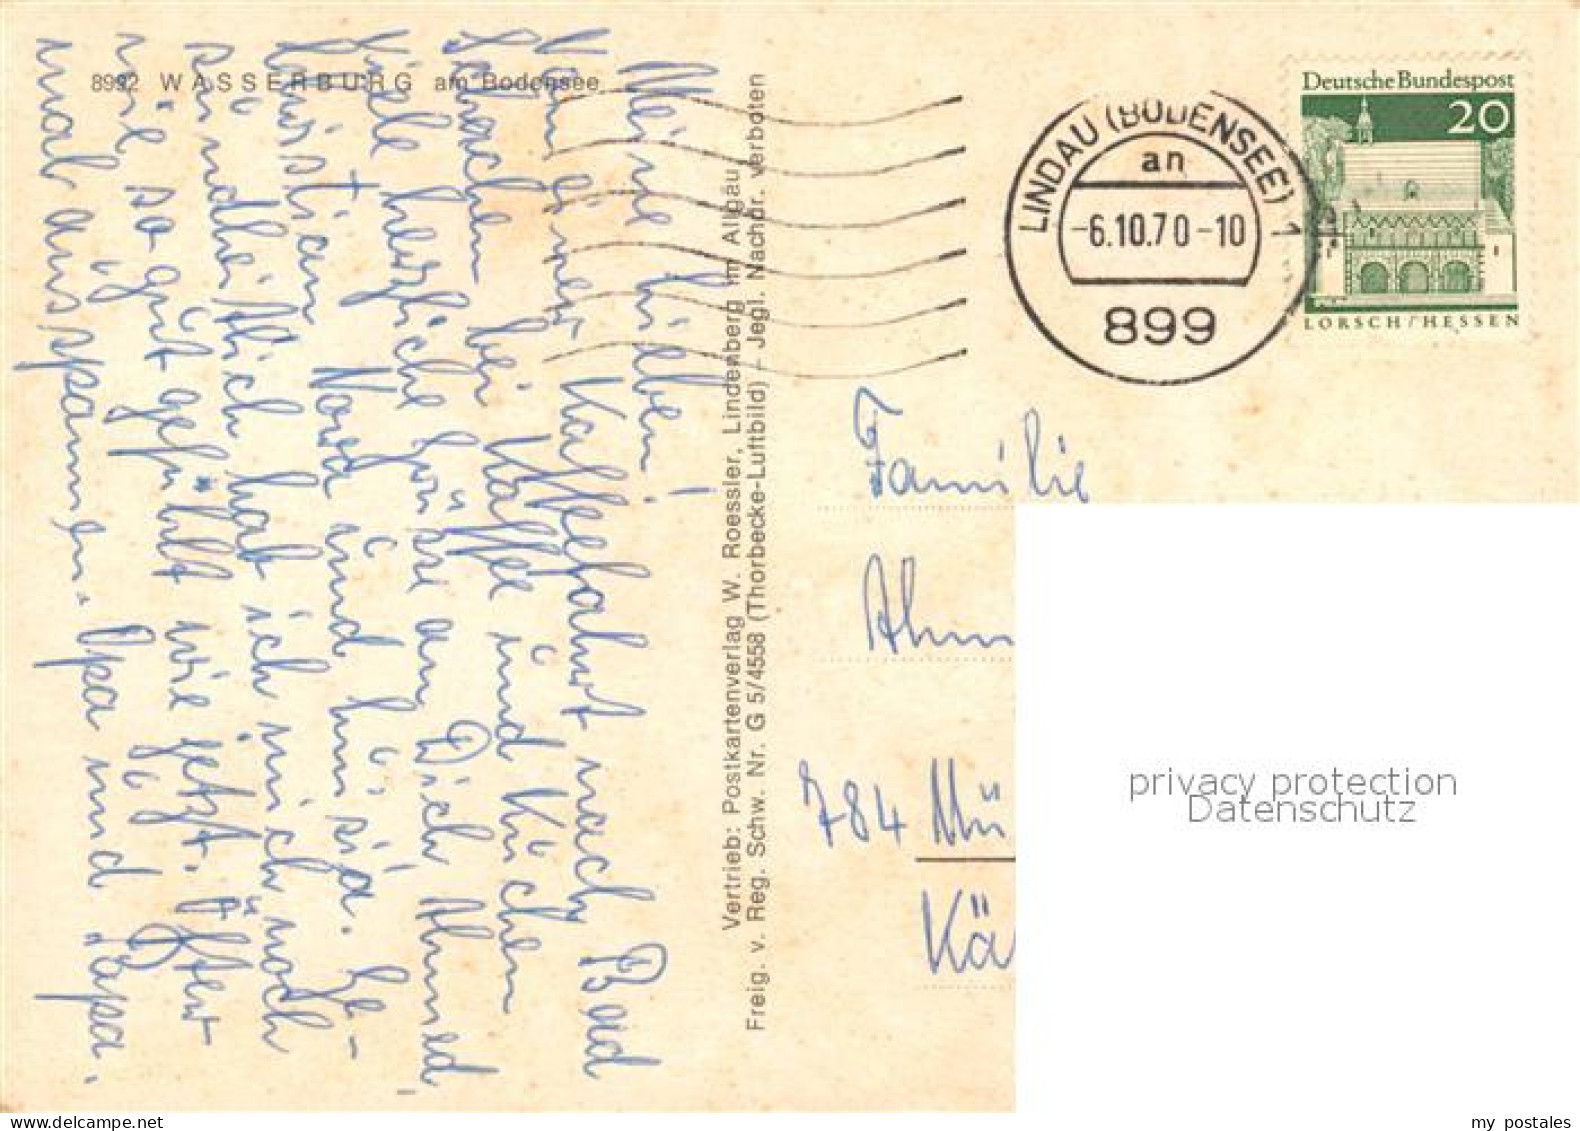 8992 WASSERBURG am Bodensee
Meine Lieben!
Von einer Kaffeefahrt nach Bad
Schachen bei Kaffee und Kuchen
viele herzliche Grüsse an Dich Ahmed
Christian Nora und Lusia. Ge-
sundheitlich hab ich mich noch
nie so gut gefühlt wie jetzt. Öfter
mal ausspannen. Opa und Papa.
Vertrieb: Postkartenverlag W. Roessler, Lindenberg im Allgäu
Freig. v. Reg. Schw. Nr. G 5/4558 (Thorbecke-Luftbild) – Jegl. Nachdr. verboten
LINDAU (BODENSEE) 1
an
-6.10.70-10
899
Deutsche Bundespost
20
LORSCH/HESSEN
Familie
784 Mü
Kä
privacy protection
Datenschutz
my postales